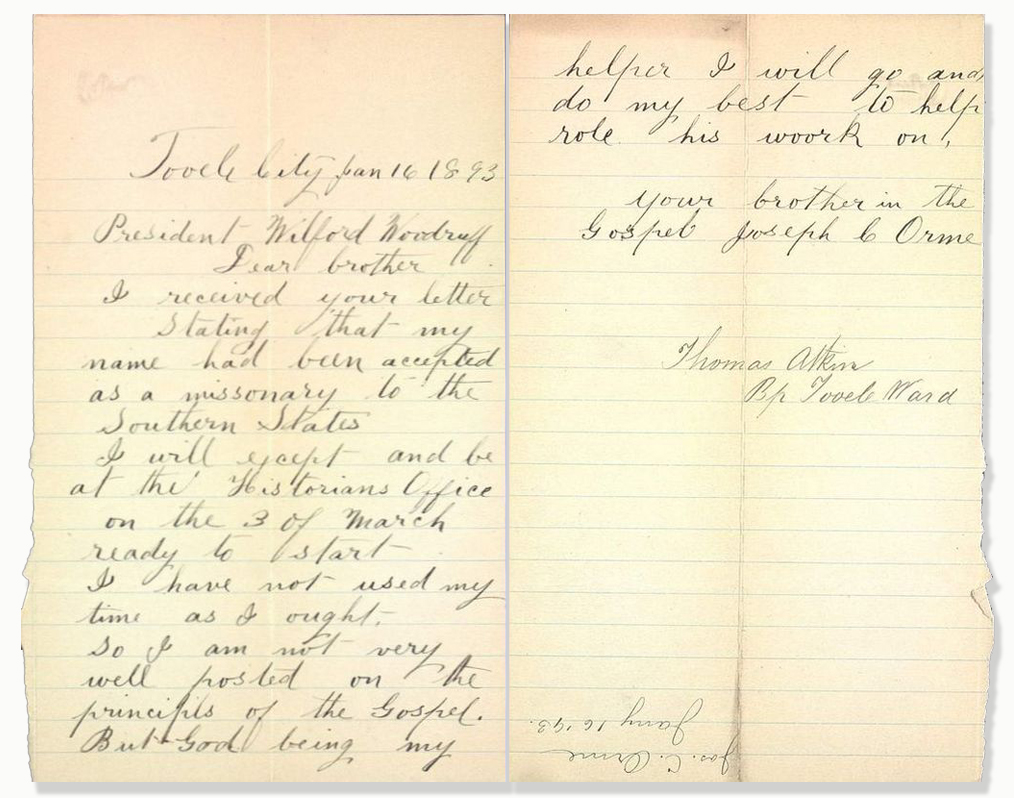 Tooele City Jan 16 1893
President Wilford Woodruff
Dear brother
I received your letter
Stating that my
name had been accepted
as a missonary to the
Southern States
I will except and be
at the Historians Office
on the 3 of March
ready to start
I have not used my
time as I ought.
So I am not very
well posted on the
principils of the Gospel.
But God being my
helper I will go and
do my best to help
role his woork on,
your brother in the
Gospel Joseph C Orme
Thomas Atkin
Bp Tooele Ward
Jos. C. Orme
Jany 16 '93.